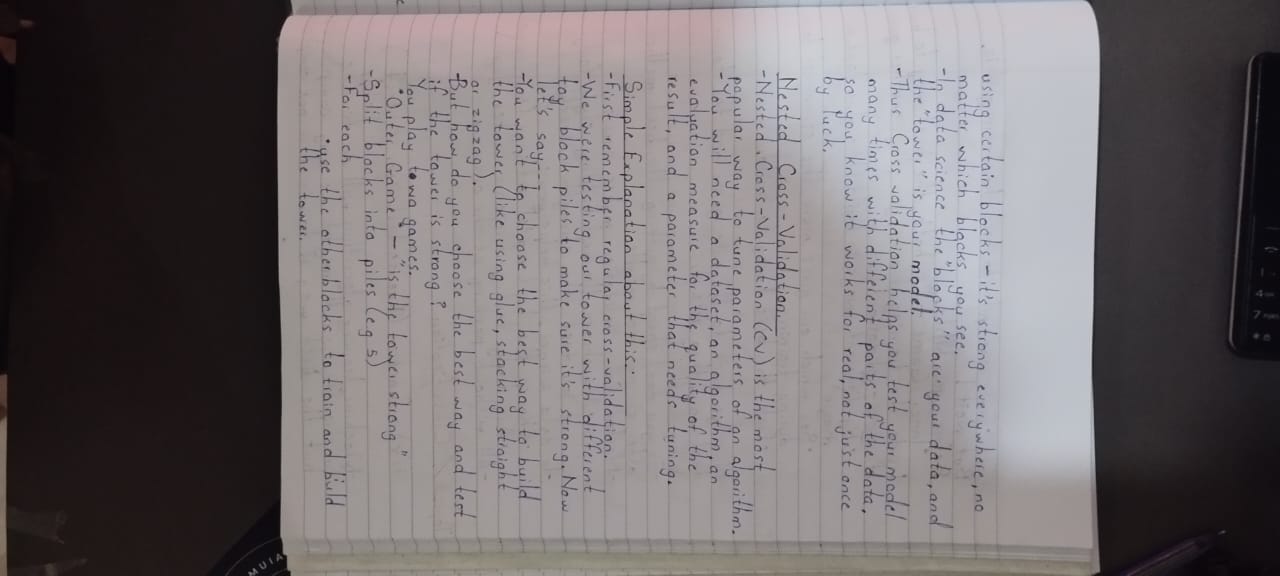 using certain blocks - it's strong everywhere, no
matter which blocks you see.
- In data science the "blocks" are your data, and
the "tower" is your model.
- Thus Cross validation helps you test your model
many times with different parts of the data,
so you know it works for real, not just once
by luck.
Nested Cross-Validation.
- Nested Cross-Validation (CV) is the most
popular way to tune parameters of an algorithm.
- You will need a dataset, an algorithm, an
evaluation measure for the quality of the
result, and a parameter that needs tuning.
Simple Explanation about this:
- First remember regular cross-validation.
- We were testing our tower with different
toy block piles to make sure it's strong. Now
let's say:-
- You want to choose the best way to build
the tower (like using glue, stacking straight
or zigzag).
- But how do you choose the best way and test
if the tower is strong?
You play towa games.
• Outer Game - "is this tower strong"
- Split blocks into piles (eg 5)
- For each
• use the other blocks to train and build
the tower.
MUIA